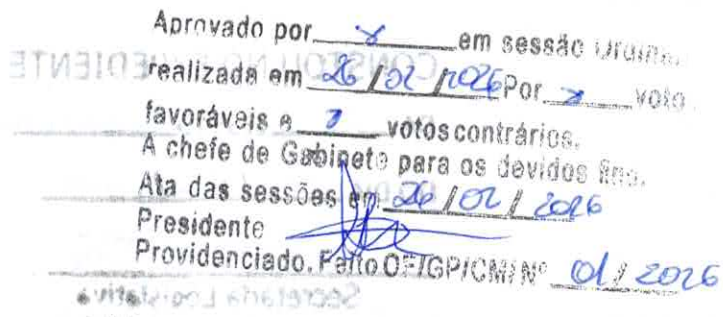 Aprovado por em sessão Ordin
realizada em 26/02/2026 Por voto
favoráveis e votos contrários.
A chefe de Gabinete para os devidos fins.
Ata das sessões em 26/02/2026
Presidente
Providenciado. Feito OF/GP/CMI Nº 01/2026
Secretaria Legislativa